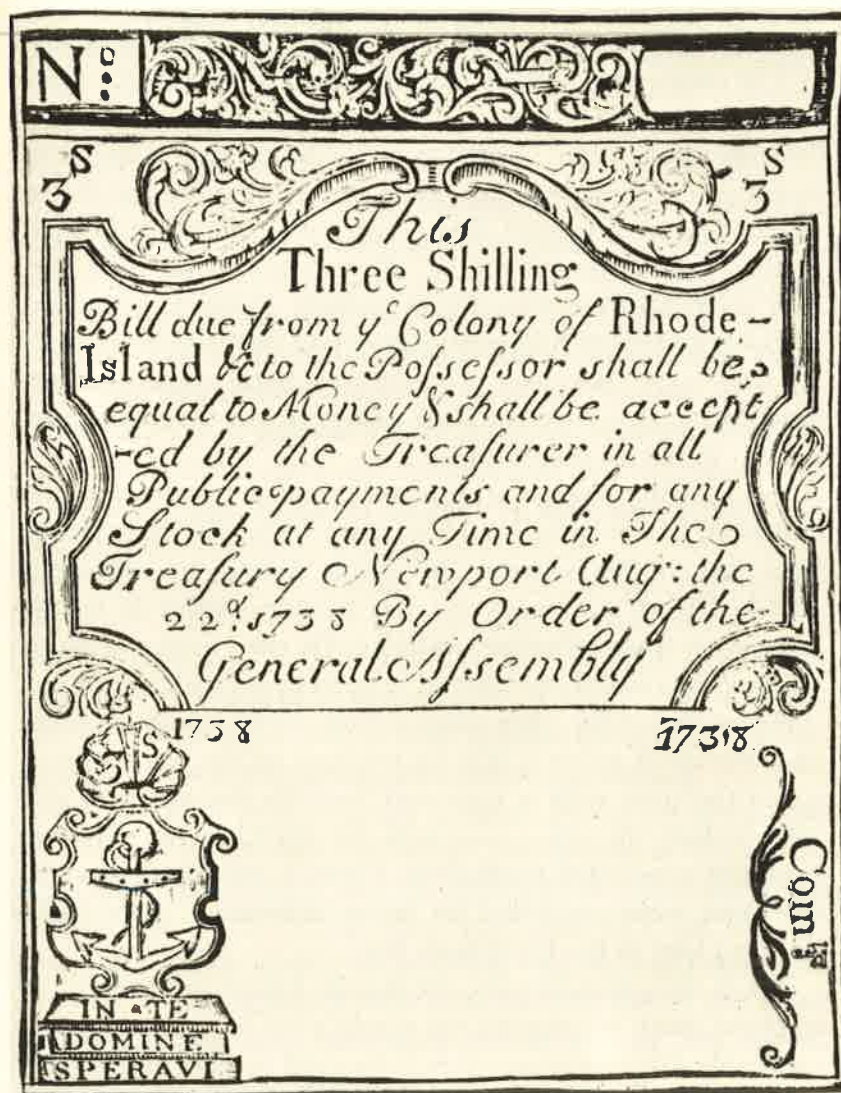 No:
3S 3S
This
Three Shilling
Bill due from ye Colony of Rhode-
Island &c to the Poſseſsor shall be
equal to Money & shall be accept
-ed by the Treaſurer in all
Public payments and for any
Stock at any Time in The
Treaſury Newport Aug: the
22d. 1738 By Order of the
General Aſsembly
1738 1738
3S
Com
IN TE
DOMINE
SPERAVI